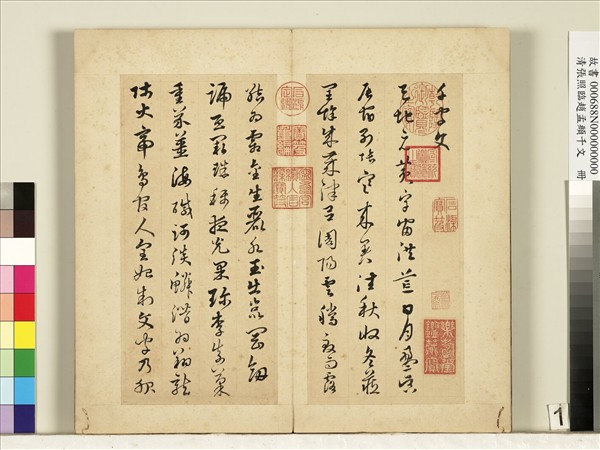 千字文
天地元黃宇宙洪荒日月盈昃
辰宿列張寒來暑往秋收冬藏
閏餘成歲律呂調陽雲騰致雨露
結為霜金生麗水玉出崑岡劍
號巨闕珠稱夜光果珍李柰菜
重芥薑海鹹河淡鱗潛羽翔龍
師火帝鳥官人皇始制文字乃服
石渠寶笈
故書 000688N000000000
清張照臨趙孟頫千文 冊
1